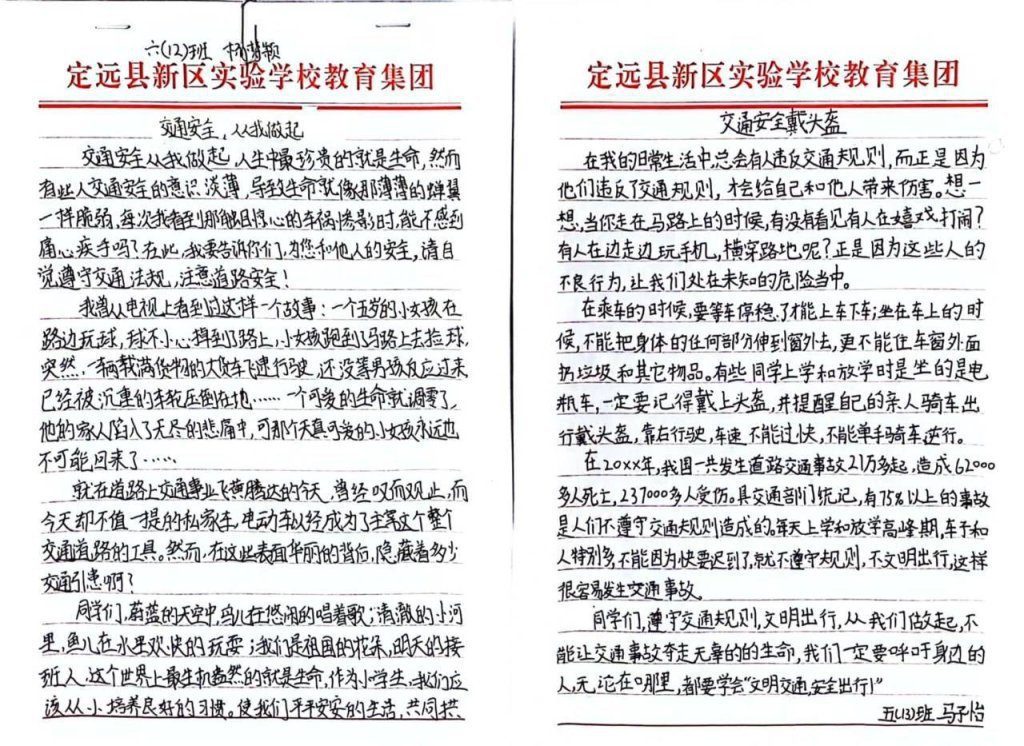 六(12)班
定远县新区实验学校教育集团
交通安全，从我做起
交通安全从我做起，人生中最珍贵的就是生命，然而
有些人交通安全的意识淡薄，导致生命就像那薄薄的蝉翼
一样脆弱。每次我看到那触目惊心的车祸惨影时，能不感到
痛心疾手吗？在此，我要告诉你们，为您和他人的安全，请自
觉遵守交通法规，注意道路安全！
我曾从电视上看到过这样一个故事：一个五岁的小女孩在
路边玩球，球不小心掉到了路上，小女孩跑到马路上去捡球，
突然，一辆载满货物的大货车飞速行驶，还没等男孩反应过来
已经被沉重的车轮压倒在地……一个可爱的生命就调零了，
他的家人陷入了无尽的悲痛中，可那个天真可爱的小女孩永远也
不可能回来了……
就在道路上交通事业飞黄腾达的今天，曾经叹而观止，而
今天却不值一提的私家车，电动车以经成为了主宰这个整个
交通道路的工具。然而，在这些表面华丽的背后，隐藏着多少
交通引患啊？
同学们，蔚蓝的天空中，鸟儿在悠闲的唱着歌；清澈的小河
里，鱼儿在水里欢快的玩耍；我们是祖国的花朵，明天的接
班人，这个世界上最生机盎然的就是生命，作为小学生，我们应
该从小培养良好的习惯。使我们平平安安的生活，共同拱
定远县新区实验学校教育集团
交通安全戴头盔
在我的日常生活中，总会有人违反交通规则，而正是因为
他们违反了交通规则，才会给自己和他人带来伤害。想一
想，当你走在马路上的时候，有没有看见有人在嬉戏打闹？
有人在边走边玩手机，横穿路地呢？正是因为这些人的
不良行为，让我们处在未知的危险当中。
在乘车的时候，要等车停稳了才能上车下车；坐在车上的时
候，不能把身体的任何部分伸到窗外去，更不能往车窗外面
扔垃圾和其它物品。有些同学上学和放学时是坐的是电
瓶车，一定要记得戴上头盔，并提醒自己的亲人骑车出
行戴头盔，靠右行驶，车速不能过快，不能单手骑车逆行。
在20xx年，我国一共发生道路交通事故21万多起，造成62000
多人死亡，237000多人受伤。具交通部门统记，有75%以上的事故
是人们不遵守交通规则造成的。每天上学和放学高峰期，车子和
人特别多，不能因为快要迟到了，就不遵守规则，不文明出行，这样
很容易发生交通事故。
同学们，遵守交通规则，文明出行，从我们做起，不
能让交通事故夺走无辜的的生命，我们一定要呼吁身边的
人，无论在哪里，都要学会“文明交通，安全出行！”
五(13)班 马子怡